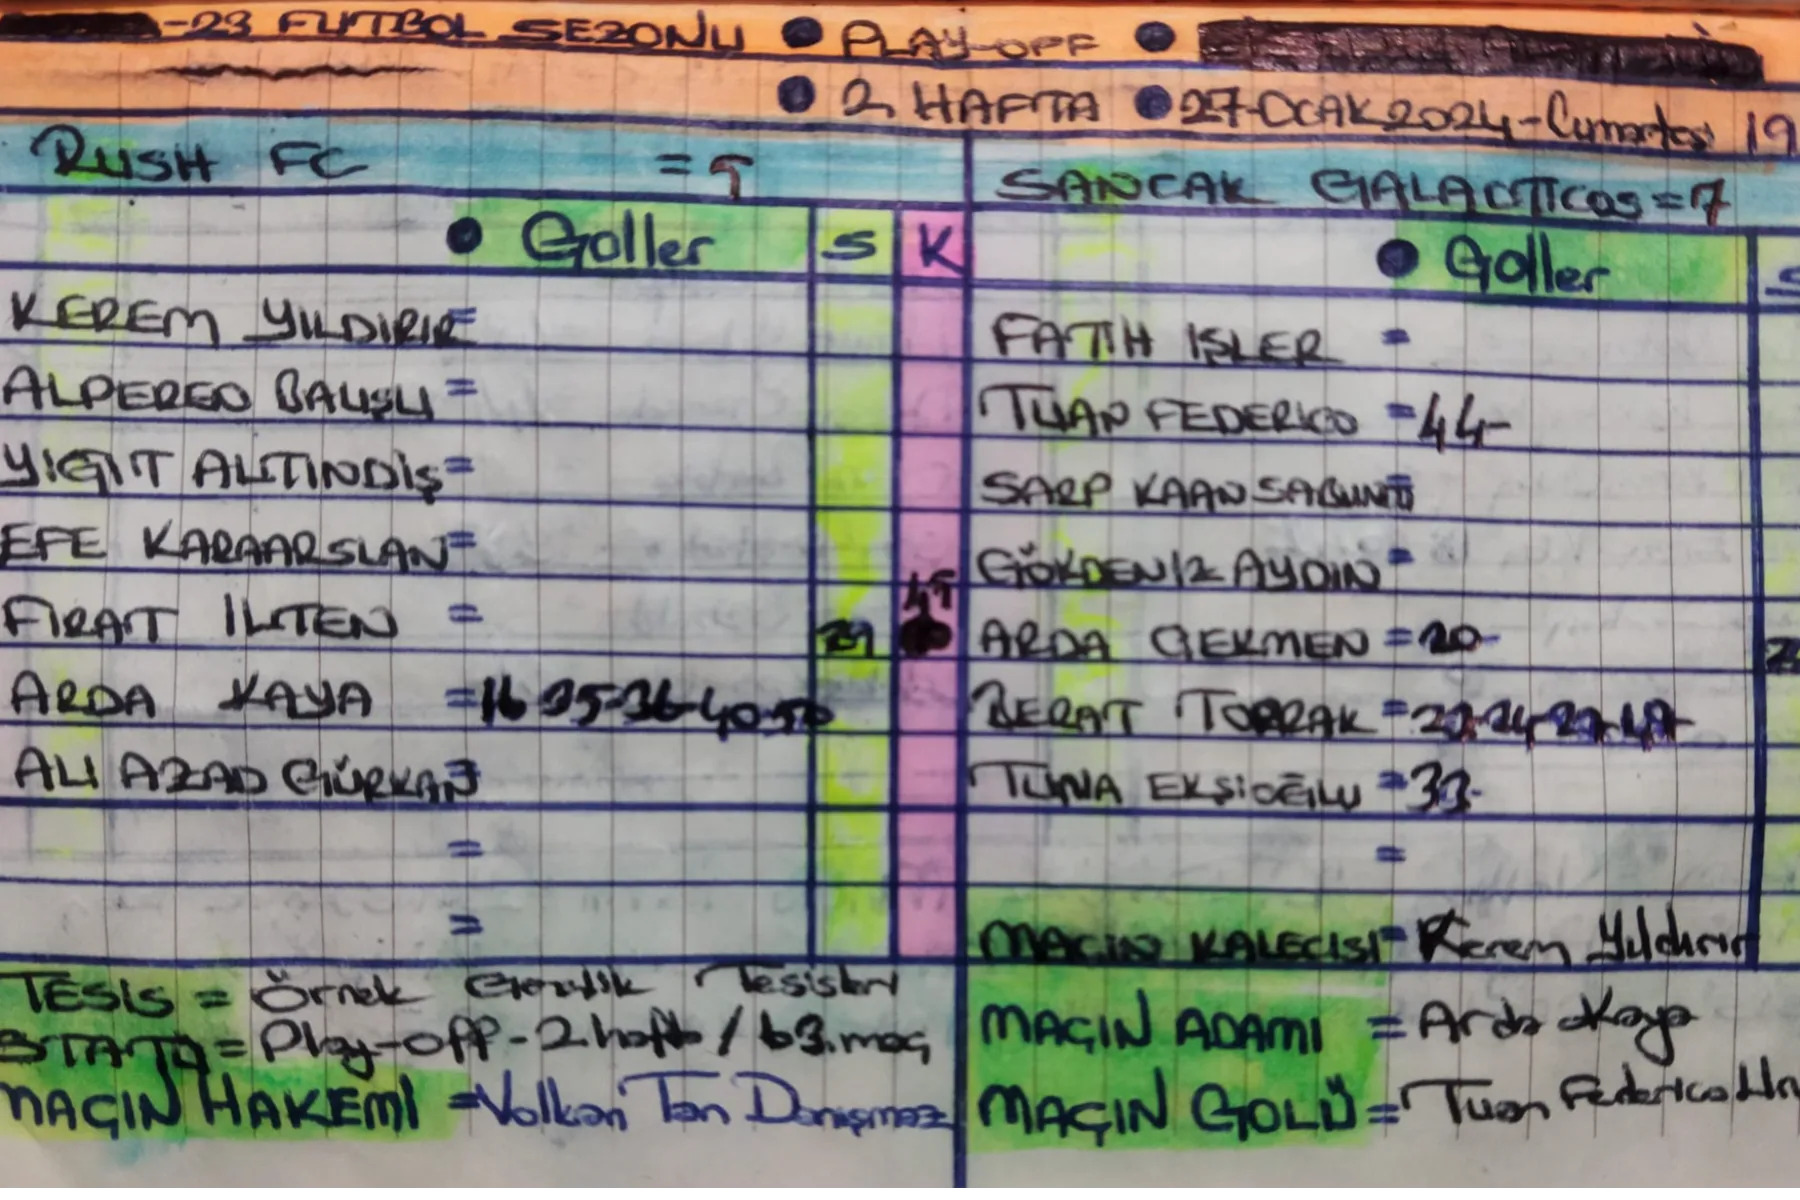 -23 FUTBOL SEZONU ● PLAY-OFF ●
● 2. HAFTA ● 27-OCAK 2024-Cumartesi 19
RUSH FC = 5
● Goller S K
KEREM YILDIRIR=
ALPEREN BALIŞLI =
YIGIT ALTINDİŞ=
EFE KARAARSLAN=
FIRAT İLTEN = 45
ARDA KAYA =16-35-36-40-50
ALI AZAD GÜRKAN=
=
=
TESIS = Örnek Gençlik Tesisleri
STATÜ = Play-off-2.hafta / 63.maç
MAÇIN HAKEMİ =Volkan Tan Danışmaz
SANCAK GALACTICOS=7
● Goller S
FATİH İŞLER =
TUAN FEDERICO =44-
SARP KAAN =
GÖKDENİZ AYDIN =
ARDA GEKMEN =20-
BERAT TOPRAK =
TUNA EKŞİOĞLU =33-
=
MAÇIN KALECISI= Kerem Yıldırır
MAÇIN ADAMI = Arda Kaya
MAÇIN GOLÜ= Tuan Federico